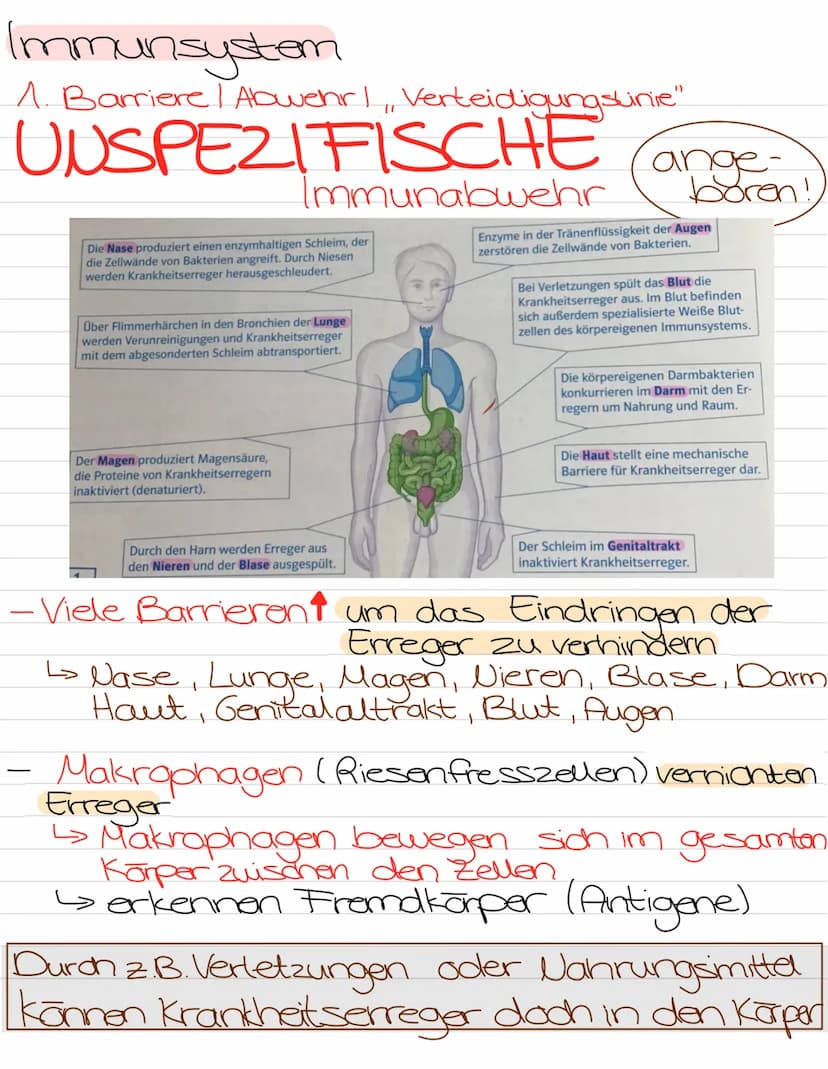 Immunsystem
1. Barriere | Abwehr | „Verteidigungslinie"
UNSPEZIFISCHE
Immunabwehr
ange-
boren!
Die Nase produziert einen enzymhaltigen Schleim, der
die Zellwände von Bakterien angreift. Durch Niesen
werden Krankheitserreger herausgeschleudert.
Enzyme in der Tränenflüssigkeit der Augen
zerstören die Zellwände von Bakterien.
Über Flimmerhärchen in den Bronchien der Lunge
werden Verunreinigungen und Krankheitserreger
mit dem abgesonderten Schleim abtransportiert.
Bei Verletzungen spült das Blut die
Krankheitserreger aus. Im Blut befinden
sich außerdem spezialisierte Weiße Blut-
zellen des körpereigenen Immunsystems.
Die körpereigenen Darmbakterien
konkurrieren im Darm mit den Er-
regern um Nahrung und Raum.
Der Magen produziert Magensäure,
die Proteine von Krankheitserregern
inaktiviert (denaturiert).
Die Haut stellt eine mechanische
Barriere für Krankheitserreger dar.
Durch den Harn werden Erreger aus
den Nieren und der Blase ausgespült.
Der Schleim im Genitaltrakt
inaktiviert Krankheitserreger.
– Viele Barrieren ↑ um das Eindringen der
Erreger zu verhindern
↳ Nase, Lunge, Magen, Nieren, Blase, Darm
Haut, Genitalaltrakt, Blut, Augen
– Makrophagen (Riesenfresszellen) vernichten
Erreger
↳ Makrophagen bewegen sich im gesamten
Körper zwischen den Zellen
↳ erkennen Fremdkörper (Antigene)
Durch z.B. Verletzungen oder Nahrungsmittel
können Krankheitserreger doch in den Körper